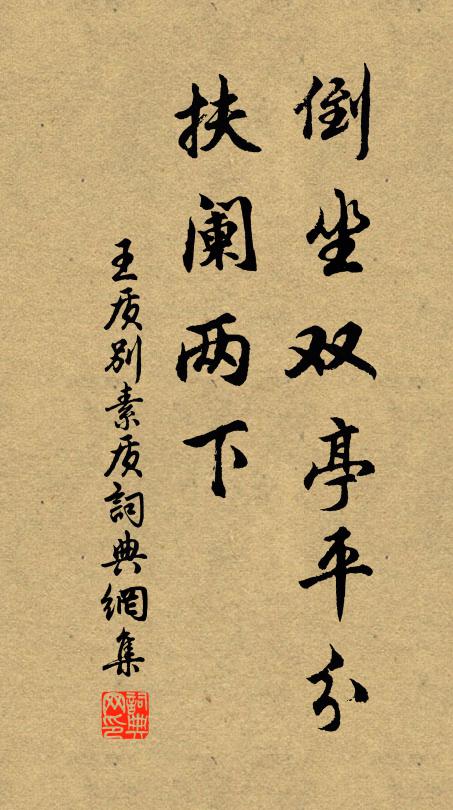 倒坐双亭平分
扶阑两下
王质别素质詞典網集
詞典网印